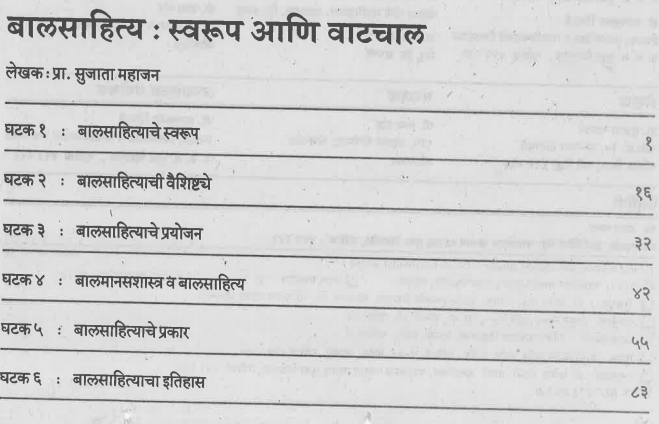 बालसाहित्य : स्वरूप आणि वाटचाल
लेखक : प्रा. सुजाता महाजन
घटक १ : बालसाहित्याचे स्वरूप १
घटक २ : बालसाहित्याची वैशिष्ट्ये १६
घटक ३ : बालसाहित्याचे प्रयोजन ३२
घटक ४ : बालमानसशास्त्र व बालसाहित्य ४२
घटक ५ : बालसाहित्याचे प्रकार ५५
घटक ६ : बालसाहित्याचा इतिहास ८३